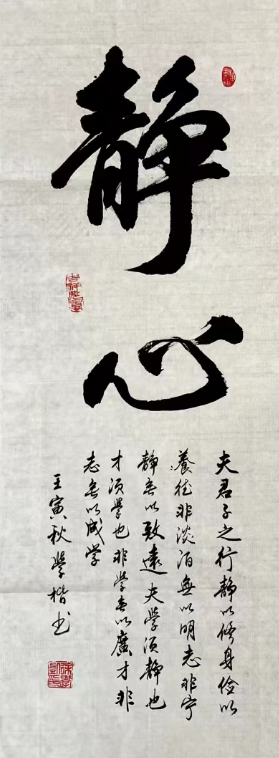 静心
夫君子之行静以修身俭以
養德非淡泊無以明志非宁
静無以致遠夫學须静也
才须學也非學無以廣才非
志無以成学
壬寅秋學楷书